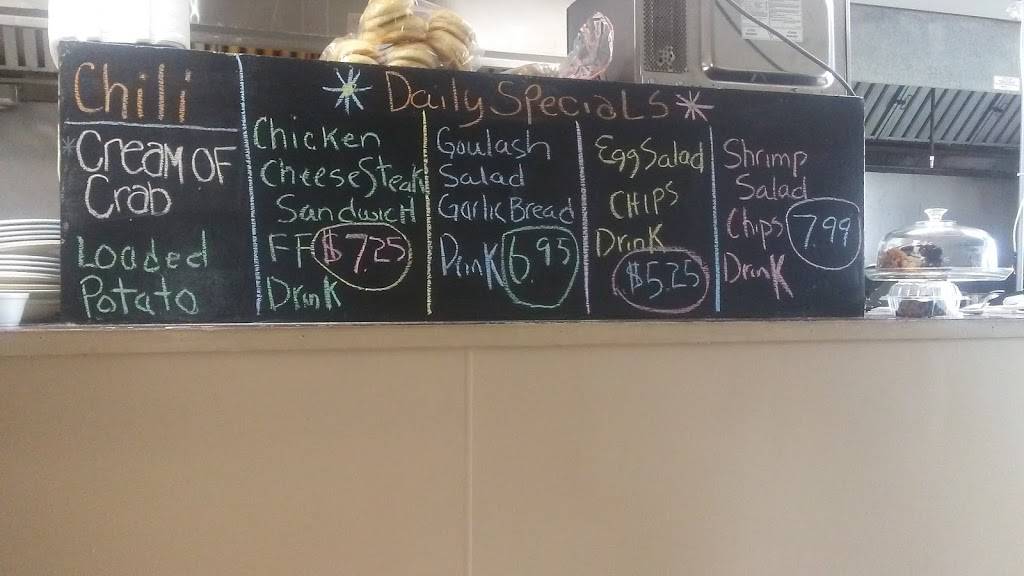 Chili
Cream of
Crab
Loaded
Potato
Daily Specials
Chicken
Cheese Steak
Sandwich
FF $7.25
Drink
Goulash
Salad
Garlic Bread
Drink 6.95
Egg Salad
CHIPS
Drink
$5.25
Shrimp
Salad
Chips 7.99
Drink